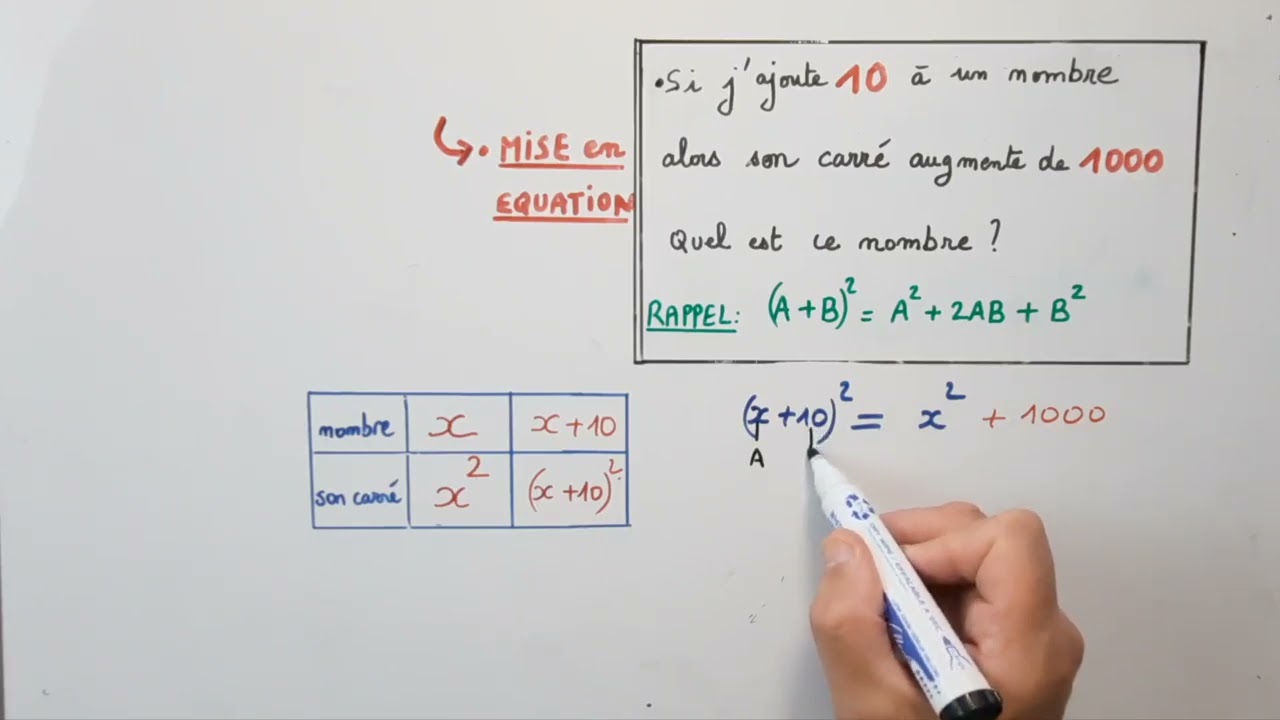 •Si j'ajoute 10 à un nombre
alors son carré augmente de 1000
Quel est ce nombre ?
RAPPEL: (A+B)² = A² + 2AB + B²
• MISE en
EQUATION
nombre x x+10
son carré x² (x+10)²
(x+10)² = x² + 1000
A